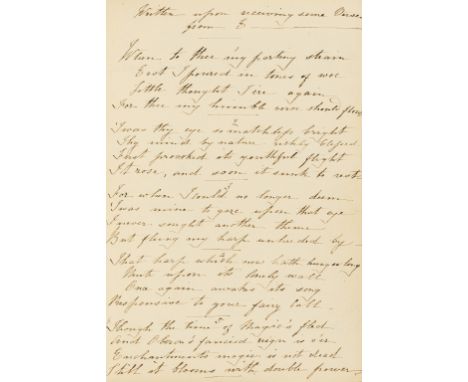 Written upon receiving some Verse
from E
When to thee my parting strain
Erst I poured in tones of woe
Little thought I e'er again
For thee my humble verse should flow
2
'Twas thy eye so matchless bright
Thy mind by nature richly blessed
First provoked its youthful flight
It rose, and soon it sunk to rest
3
For when I could no longer deem
'Twas mine to gaze upon that eye
I never sought another theme
But flung my harp unheeded by
4
That harp which now hath hung so long
Mute upon its lonely wall
Once again awakes its song
Responsive to your fairy call
5
Though the time of Magic's fled
And Oberon's fancied reign is o'er
Enchantments magic is not dead
Still it blooms with double power